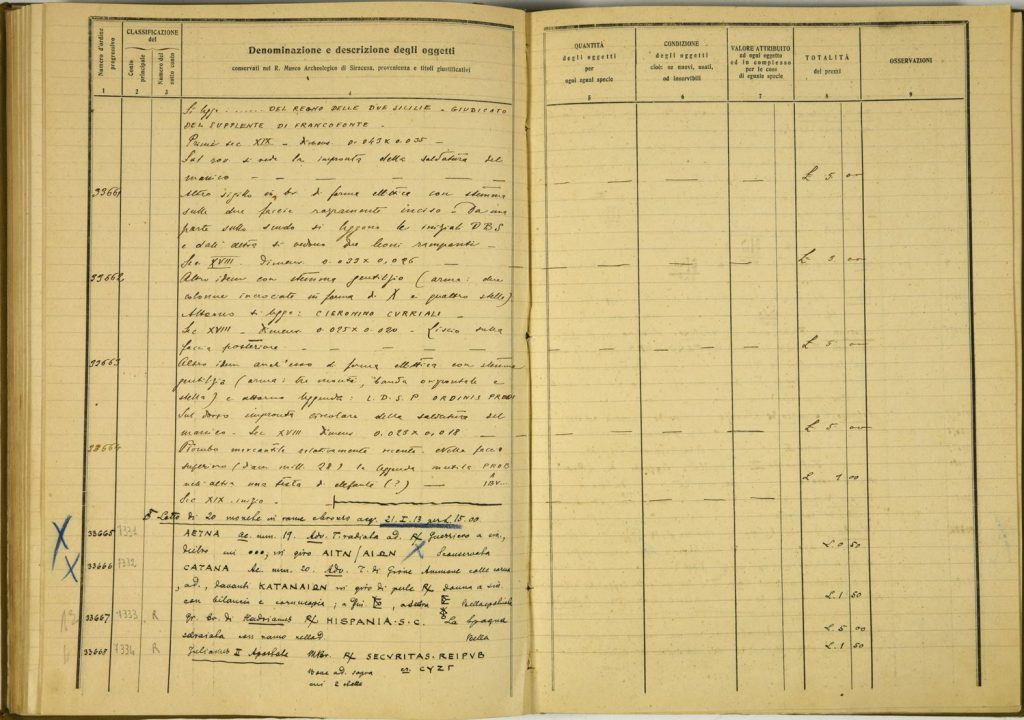 Numero d'ordine progressivo
CLASSIFICAZIONE
del
Conto principale
Numero del sotto conto
Denominazione e descrizione degli oggetti
conservati nel R. Museo Archeologico di Siracusa, provenienza e titoli giustificativi
QUANTITÀ
degli oggetti
per
ogni egual specie
CONDIZIONE
degli oggetti
cioè: se nuovi, usati,
od inservibili
VALORE ATTRIBUITO
ad ogni oggetto
od in complesso
per le cose
di eguale specie
TOTALITÀ
dei prezzi
OSSERVAZIONI
1 2 3 4 5 6 7 8 9
Si legge ........ DEL REGNO DELLE DUE SICILIE - GIUDICATO
DEL SUPPLENTE DI FRANCOFONTE.
Primi sec XIX - Dimens. 0.043 x 0.035 -
Sul rov si vede la impronta della saldatura del
manico - - - - - L 5 00
33661 Altro sigillo in br. di forma ellittica con stemma
sulle due faccie rozzamente inciso - Da una
parte sullo scudo si leggono le iniziali D B S
e dall'altra si vedono due leoni rampanti -
Sec XVIII. Dimens. 0.033 x 0,026 - L 3. 00
33662 Altro idem con stemma gentilizio (arma: due
colonne incrociate in forma di X e quattro stelle)
Attorno si legge: CIERONIMO CURRIALI -
Sec XVIII - Dimens 0.025 x 0.020 - Liscio sulla
faccia posteriore - - - - L 5 00
33663 Altro idem anch'esso di forma ellittica con stemma
gentilizio (arma: tre monti, banda orizzontale e
stella) e attorno leggenda: L. D. S. P ORDINIS PREDI
Sul dorso impronta circolare della saldatura del
manico. Sec XVIII Dimens 0.023 x 0,018 - L 5 00
33664 Piombo mercantile relativamente recente. Nella faccia
superiore (diam mill. 28) la leggenda mutila PROB
nell'altra una testa di elefante (?) - IBV...
Sec XIX. inizio. L 1 00
Lotto di 20 monete in rame ebbero acq. 21.I.13 per L 15.00
33665 7331 AETNA ae. num. 19. Adv. T. radiata ad. R/ Guerriero a sin,
dietro cui ooo, in giro AITN/AIΩN X Sconservata
L. 0 50
33666 7332 CATANA Ae. num. 20. Adv. T. di Giove Ammone colle corna
ad., davanti KATANAIΩN in giro di perle R/ donna a sin
con bilancia e cornucopia; L. 1 50
33667 7333 R Gr. br. di Hadrianus R/ HISPANIA.S.C. La Spagna
sdraiata con ramo nella d. Bella L. 5 00
33668 7334 R Julianus II Apostata MBr. R/ SECVRITAS.REIPVB
Bove ad. sopra ex. CYZΓ
cui 2 stelle
L. 1 50